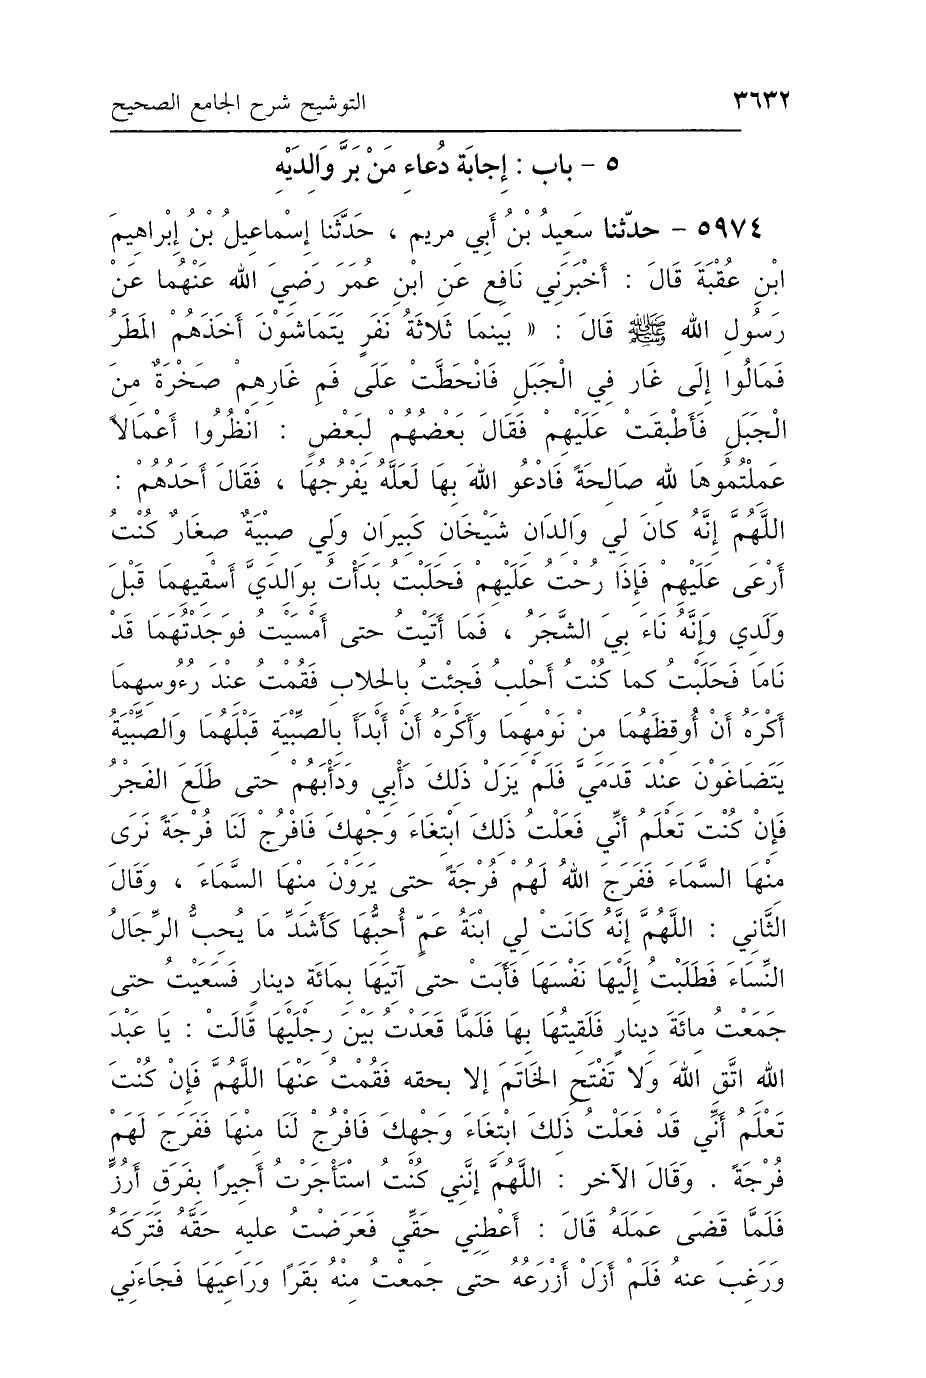 ٣٦٣٢ التوشيح شرح الجامع الصحيح
٥ - باب : إجابَة دُعاءِ مَنْ بَرَّ وَالدَيْهِ
٥٩٧٤ - حدّثنا سَعِيدُ بْنُ أَبي مريم ، حَدَّثَنا إسْماعِيلُ بْنُ إبْراهيمَ
ابْنِ عُقْبَةَ قَالَ : أَخْبَرَنِي نَافِع عَنِ ابْنِ عُمَرَ رَضِيَ الله عَنْهُما عَنْ
رَسُولِ الله ﷺ قَالَ : « بَينمَا ثَلَاثَةُ نَفَرٍ يَتَمَاشَوْنَ أَخَذَهُمْ المَطَرُ
فَمَالُوا إِلَى غَارٍ فِي الْجَبَلِ فَانْحَطَّتْ عَلَى فَمِ غَارِهِمْ صَخْرَةٌ مِنَ
الْجَبَلِ فَأَطْبَقَتْ عَلَيهِمْ فَقَالَ بَعْضُهُمْ لِبَعْضٍ : انْظُرُوا أَعْمَالاً
عَمِلْتُمُوهَا للهِ صَالحَةً فَادْعُو اللهَ بِهَا لَعَلَّهُ يَفْرُجُهَا ، فَقَالَ أَحَدُهُمْ :
اللَّهُمَّ إِنَّهُ كانَ لي وَالدَانِ شَيْخَانِ كَبِيرَانِ وَلي صِبْيَةٌ صِغَارٌ كُنْتُ
أَرْعَى عَلَيْهِمْ فَإِذَا رُحْتُ عَلَيْهِمْ فَحَلَبْتُ بَدَأْتُ بوَالدَيَّ أَسْقِيهِمَا قَبْلَ
وَلَدِي وَإِنَّهُ نَاءَ بيَ الشَّجَرُ ، فَمَا أَتَيْتُ حتى أَمْسَيْتُ فوَجَدْتُهُمَا قَدْ
نَامَا فَحَلَبْتُ كما كُنْتُ أَحْلِبُ فَجِئْتُ بالحِلابِ فَقُمْتُ عِنْدَ رُءُوسِهِمَا
أَكْرَهُ أَنْ أُوقِظَهُمَا مِنْ نَوْمِهِمَا وَأَكْرَهُ أَنْ أَبْدَأَ بِالصِّبْيَةِ قَبْلَهُمَا وَالصِّبْيَةُ
يَتَضَاغَوْنَ عِنْدَ قَدَمَيَّ فَلَمْ يَزَلْ ذَلكَ دَأْبِي وَدَأْبَهُمْ حتى طَلَعَ الفَجْرُ
فَإِنْ كُنْتَ تَعْلَمُ أنِّي فَعَلْتُ ذَلكَ ابْتِغَاءَ وَجْهِكَ فَافْرُجْ لَنَا فُرْجَةً نَرَى
مِنْهَا السَّمَاءَ فَفَرَجَ اللهُ لَهُمْ فُرْجَةً حتى يَرَوْنَ مِنْهَا السَّمَاءَ ، وقَالَ
الثَّاني : اللَّهُمَّ إِنَّهُ كَانَتْ لِي ابْنَةُ عَمٍّ أُحبُّهَا كَأَشَدِّ مَا يُحِبُّ الرِّجَالُ
النِّسَاءَ فَطَلَبْتُ إِلَيْهَا نَفْسَهَا فَأَبَتْ حتى آتِيَهَا بِمَائَة دِينارٍ فَسَعَيْتُ حتى
جَمَعْتُ مائَةَ دِينارٍ فَلَقِيتُهَا بها فَلَمَّا قَعَدْتُ بَيْنَ رِجْلَيْهَا قَالَتْ : يَا عَبْدَ
اللهِ اتَّقِ اللهَ وَلا تَفْتَحِ الخَاتَمَ إلا بحقه فقُمْتُ عَنْهَا اللَّهُمَّ فَإِنْ كُنْتَ
تَعْلَمُ أَنِّي قَدْ فَعَلْتُ ذَلكَ ابْتِغَاءَ وَجْهِكَ فَافْرُجْ لَنَا مِنْهَا فَفَرَجَ لَهُمْ
فُرْجَةً . وَقَالَ الآخر : اللَّهُمَّ إِنَّنِي كُنْتُ استَأْجَرْتُ أَجيرًا بِفَرَقِ أَرُزٍّ
فَلَمَّا قَضَى عَمَلَهُ قَالَ : أَعْطِنِي حَقِّي فَعَرَضْتُ عليهِ حَقَّهُ فَتَرَكَهُ
وَرَغِبَ عنهُ فَلَمْ أَزَلْ أَزْرَعُهُ حتى جَمعْتُ مِنْهُ بَقَرًا وَرَاعِيَهَا فَجَاءَنِي